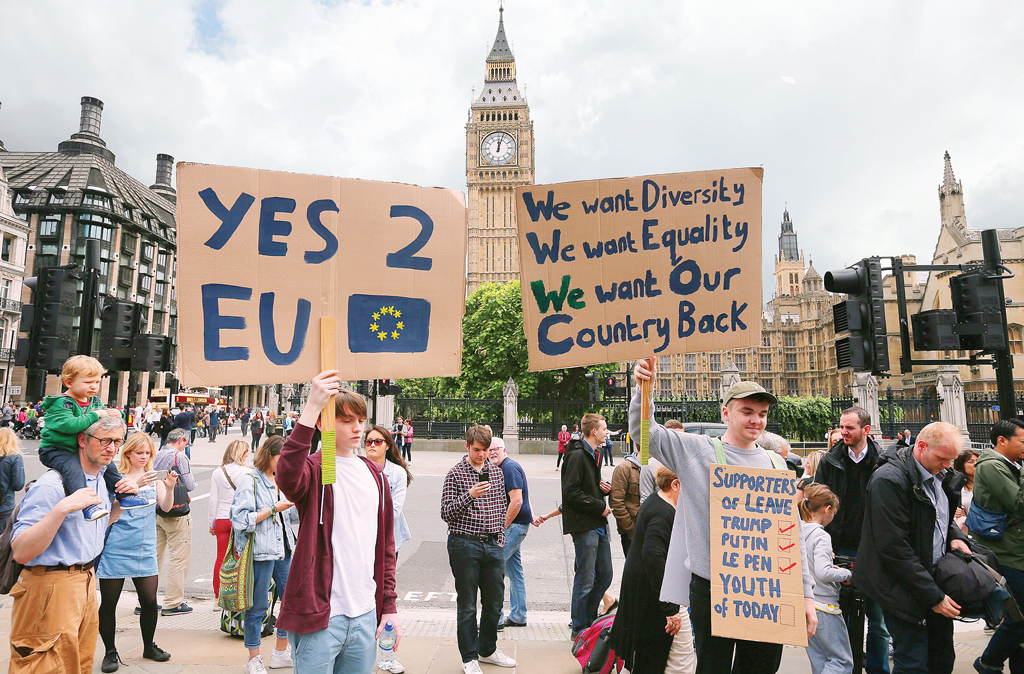 YES 2
EU
We want Diversity
We want Equality
We want Our
Country Back
SUPPORTERS
OF LEAVE
TRUMP
PUTIN
LE PEN
YOUTH
OF TODAY